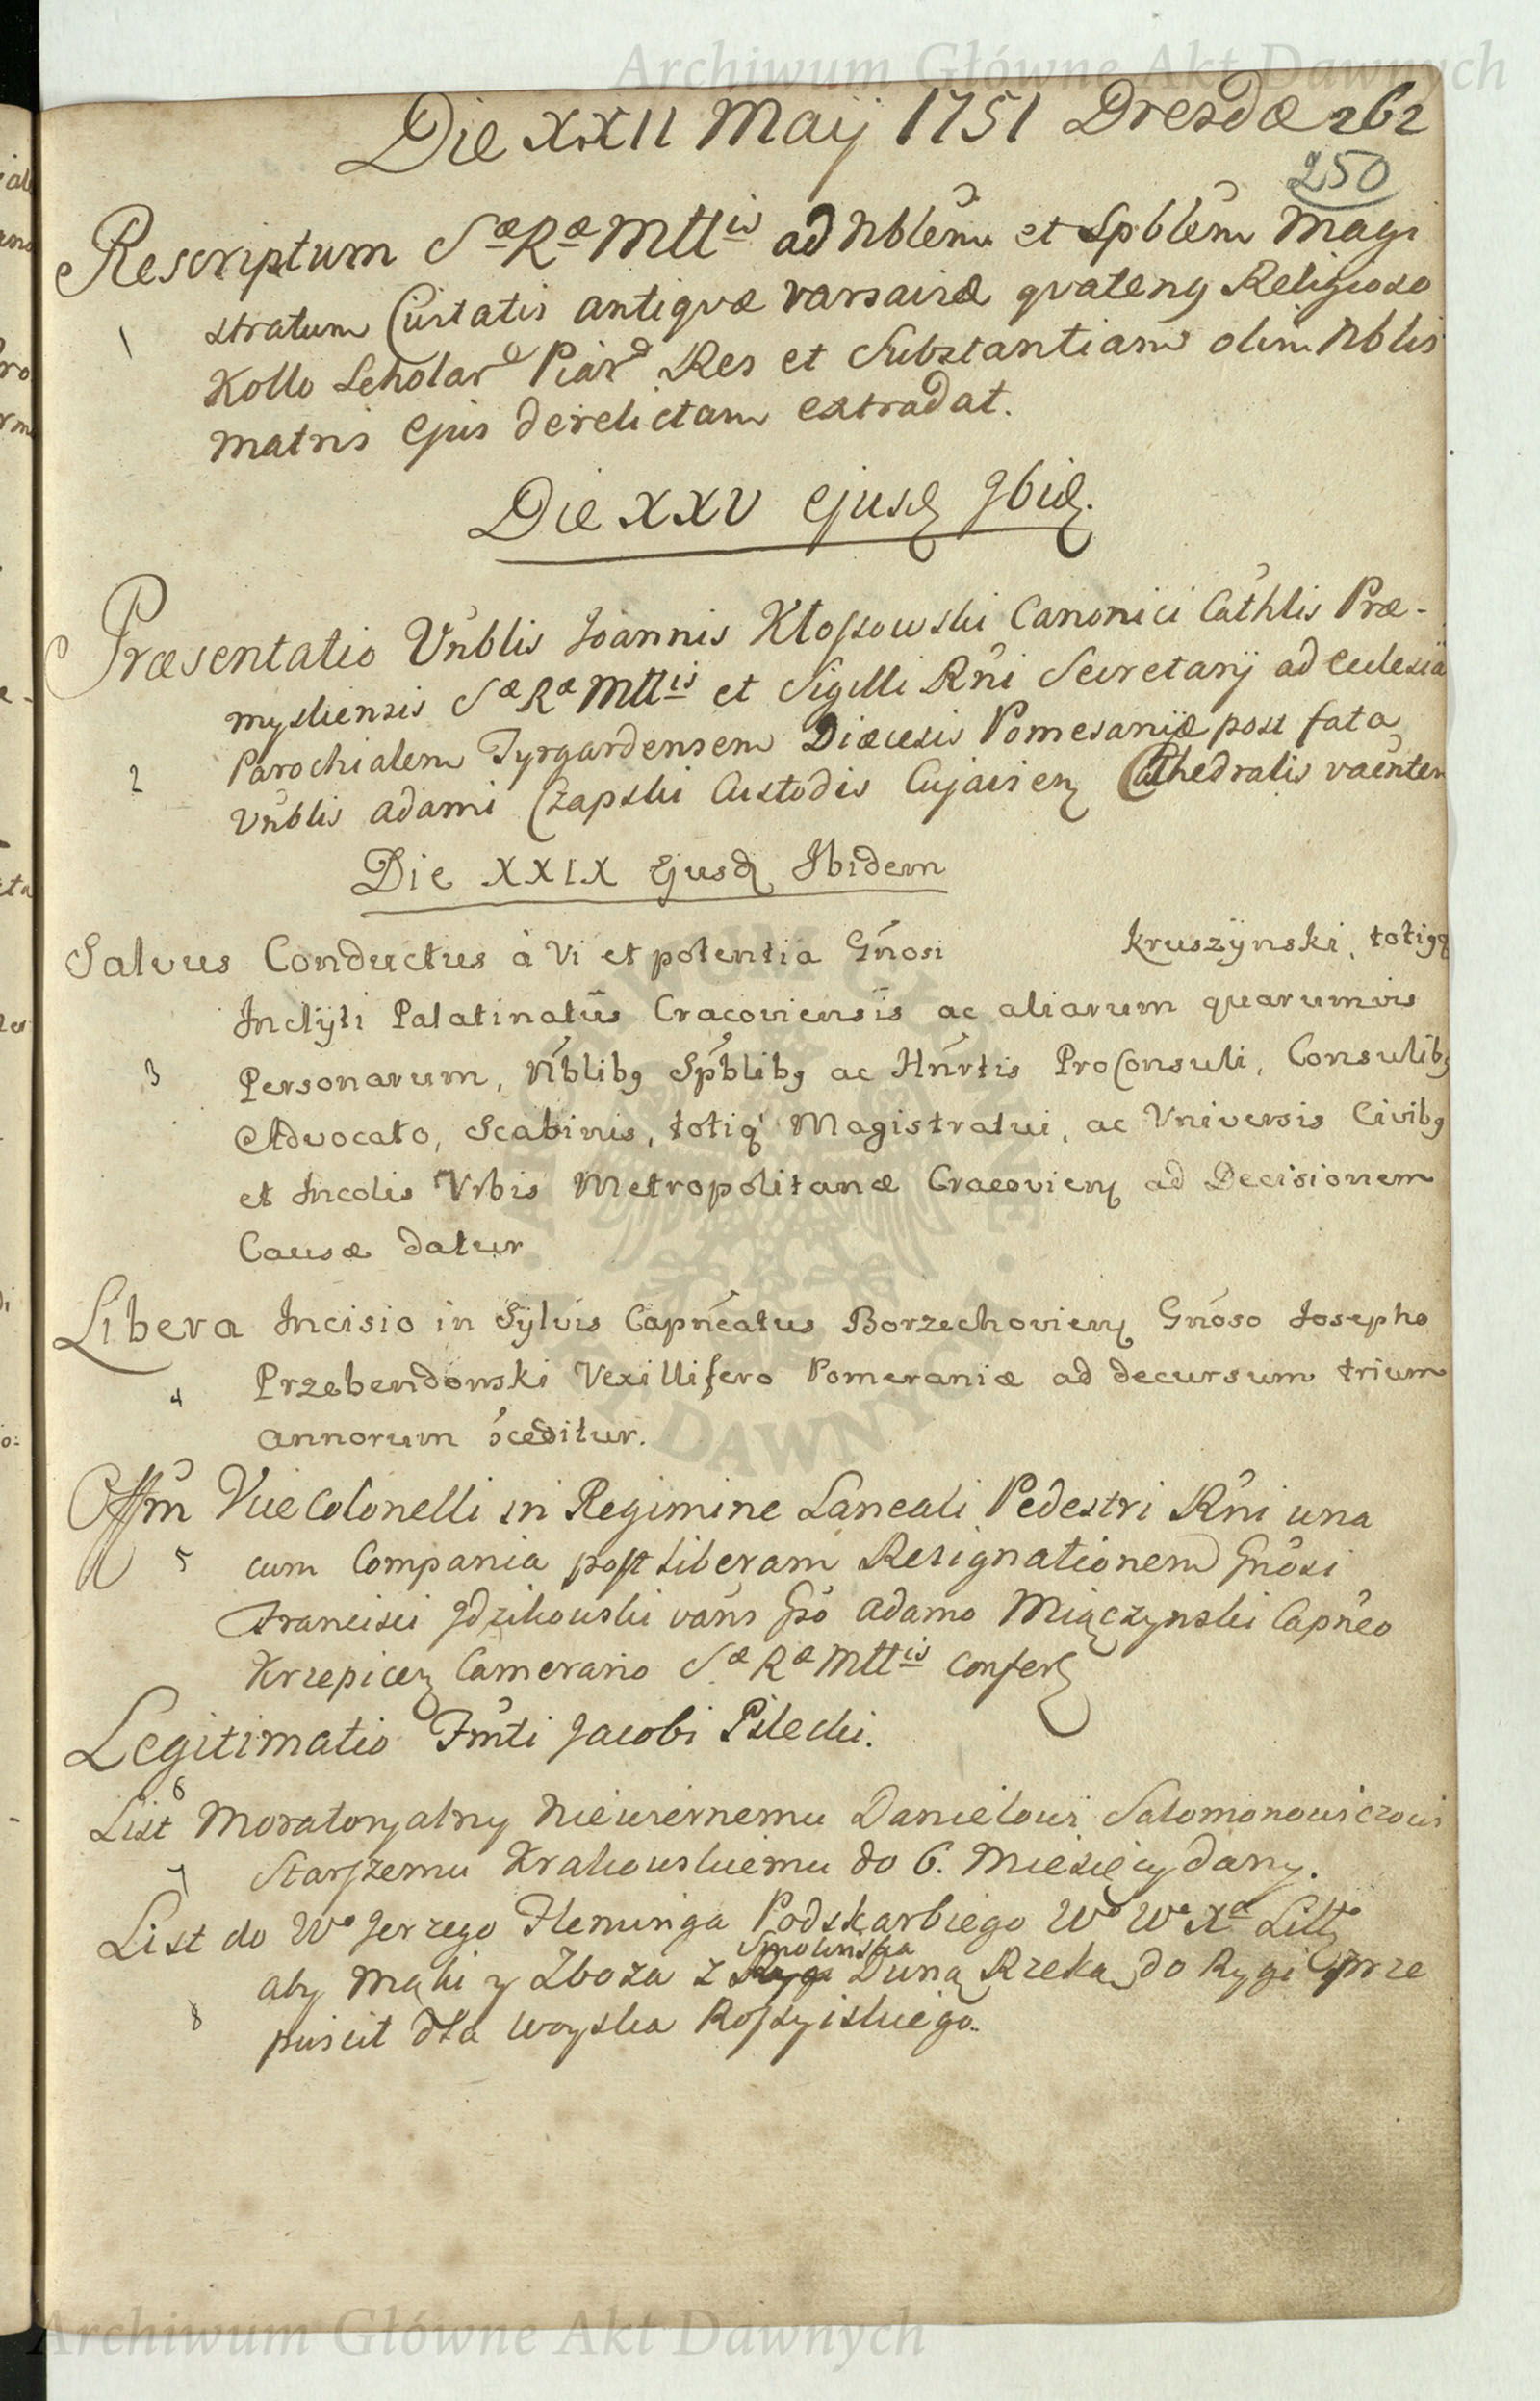 Archiwum Główne Akt Dawnych
Die XXII Maij 1751 Dresdæ 262
250
Rescriptum Sæ Ræ Mttis ad Nblem et Spblem Magi
stratum Civitatis antiquæ varsaviæ quatenq Religioso
1
Kollo Scholar Piar Res et Substantiam olim Nblis
matris ejus derelictam extradat.
Die XXV ejusd Ibid.
Præsentatio Vnblis Joannis Kłossowski Canonici Cathlis Præ-
mysliensis Sæ Ræ Mttis et Sigilli Rni Secretarij ad Eclesia
Parochialem Tyrgardensem Diæcesis Pomesaniæ post fata
2
Vnblis Adami Czapski Custodis Cujavien Cathedralis vacnten
Die XXIX Ejusd Ibidem
Salvus Conductus à Vi et potentia Gnosi Kruszÿnski, totiqq
Inclÿti Palatinatûs Cracoviensis ac aliarum quarumvis
3
Personarum, Nblibq Spblibq ac Hnrtis ProConsuli, Consulibq
Advocato, Scabinis, totiq Magistratui, ac Vniversis Civibq
et Incolis Vrbis Metropolitanæ Cracovien ad Decisionem
Causæ datur
Libera Incisio in Sylvis Capneatus Borzechovien Gnoso Josepho
4
Przebendowski Vexillifero Pomeraniæ ad decursum trium
annorum ɔceditur.
Offm ViceColonelli in Regimine Laneali Pedestri Rni una
5
cum Compania post liberam Resignationem Gnosi
Francisci Idzikowski vans Gso Adamo Miączynski Capneo
Krzepicen Camerario Sæ Ræ Mttis confer
Legitimatio Fmti Jacobi Pilecki.
6
List Moratoryalny Niewiernemu Danielowi Salomonowiczowi
7
Starszemu Krakowskiemu do 6. Miesięcy dany.
List do Wo Jerzego Fleminga Podskarbiego Wo Wo Xa Litt
Smolenska
aby Mąki y Zboza z Ryga Duną Rzeką do Rygi prze
8
puscił dla woyska Rossyiskiego.
Archiwum Główne Akt Dawnych